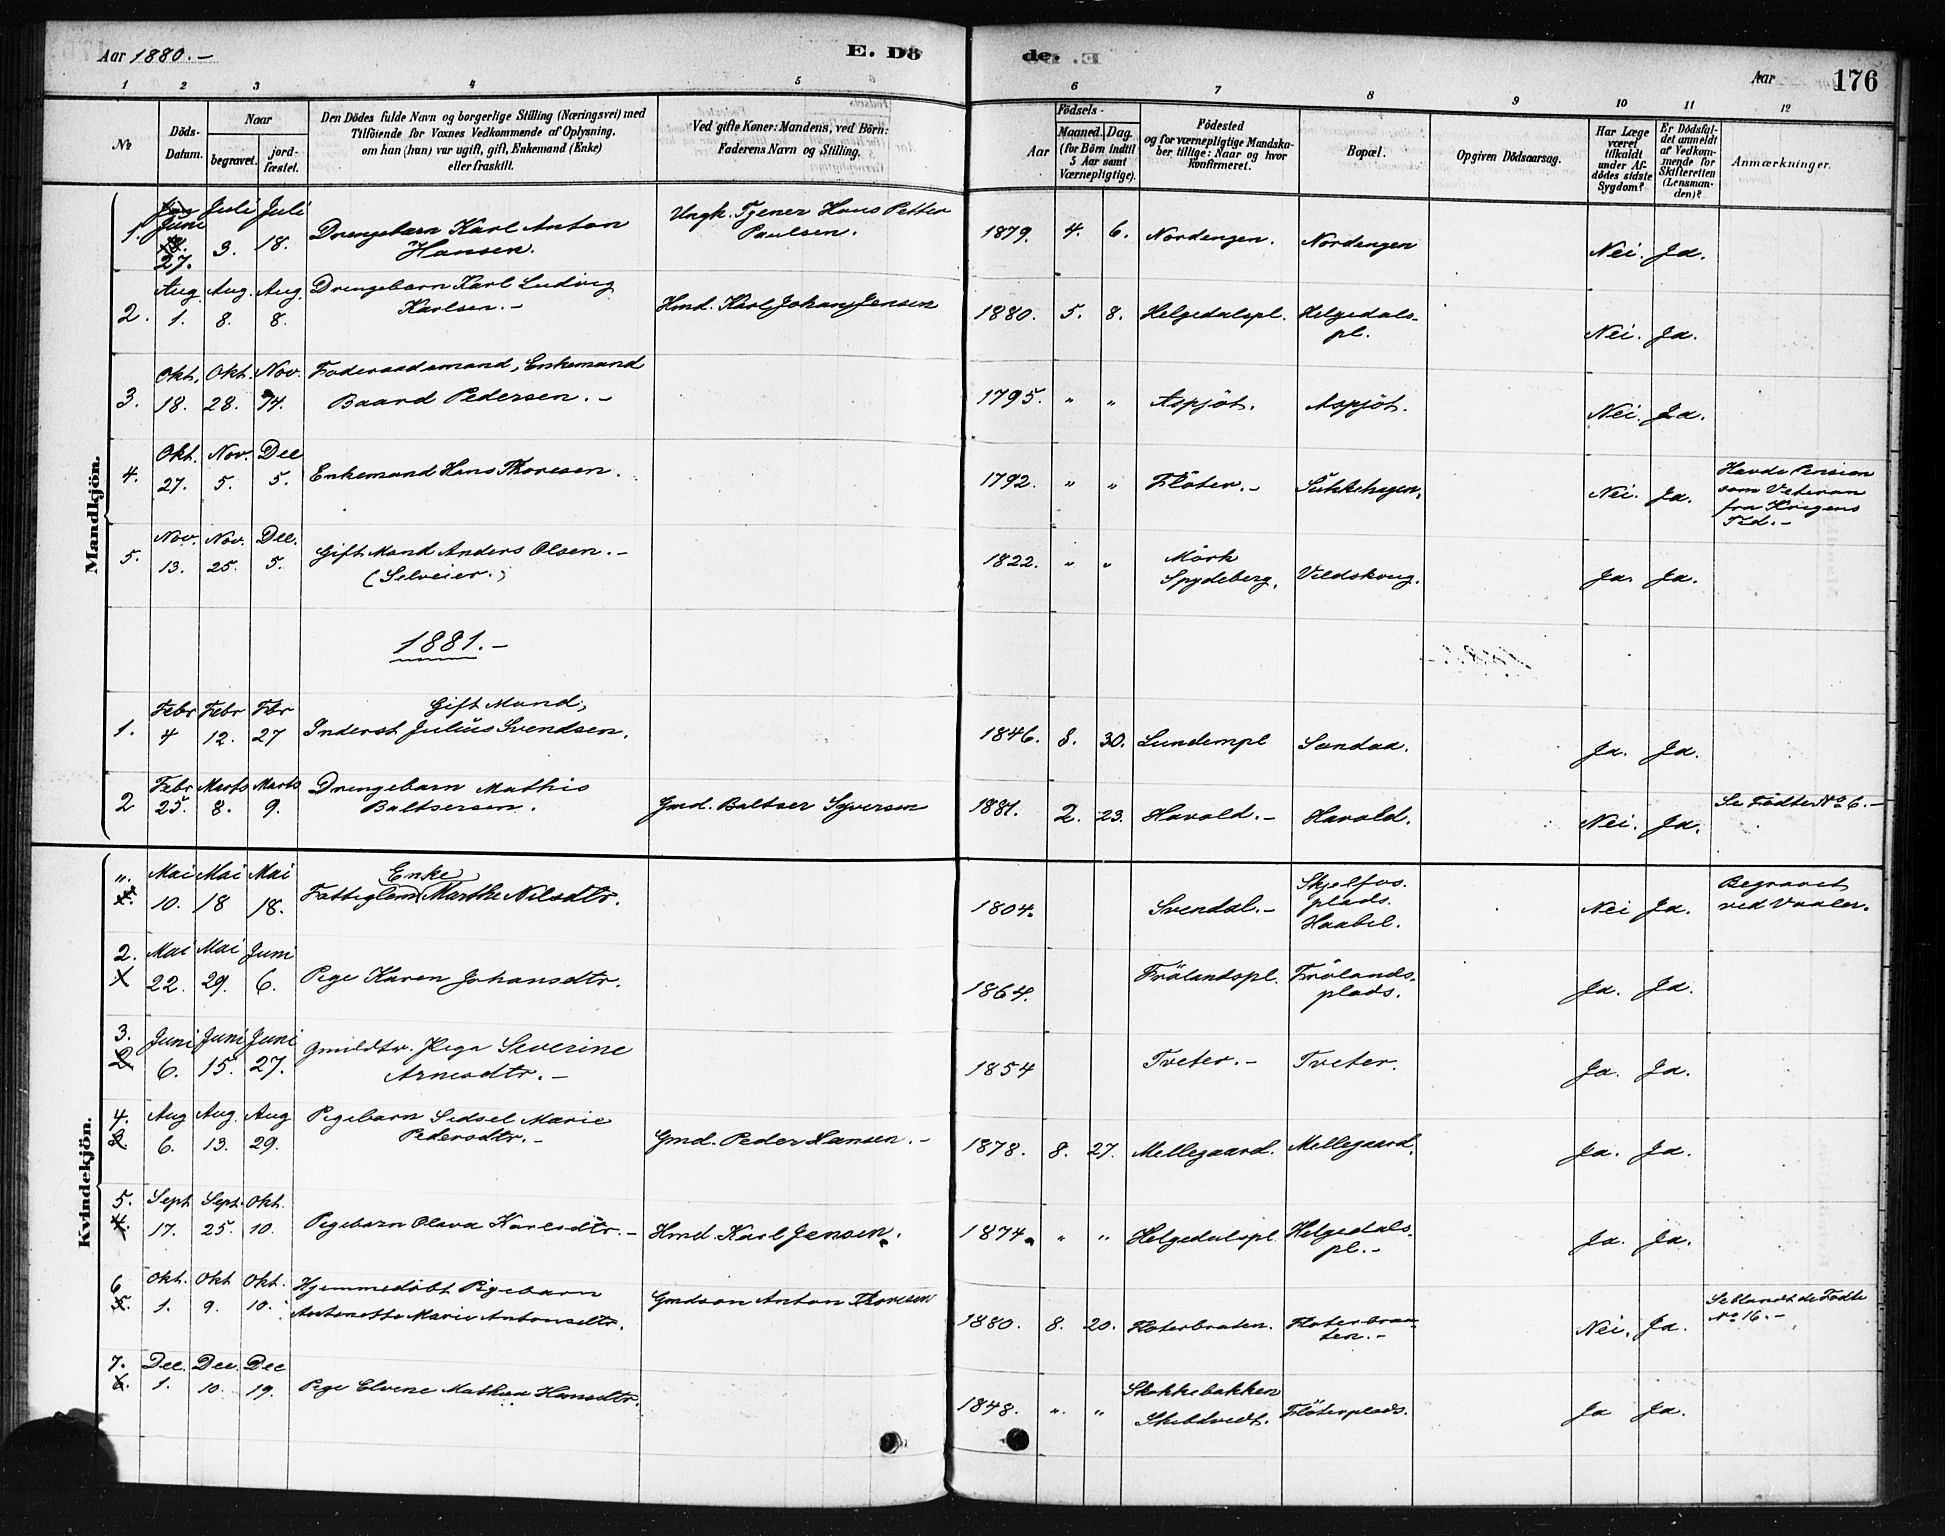 Aar 1880.–
E. Dö
de.
Aar
176
1 2 3 4 5
6 7 8 9 10 11 12
No
Döds-
Datum.
Naar
begravet.
jord-
fæstet.
Den Dödes fulde Navn og borgerlige Stilling (Næringsvei) med
Tilföiende for Voxnes Vedkommende af Oplysning,
om han (hun) var ugift, gift, Enkemand (Enke)
eller fraskilt.
Ved gifte Koner: Mandens, ved Börn:
Faderens Navn og Stilling.
Födsels-
Aar
Maaned. Dag.
(for Börn indtil
5 Aar samt
Værnepligtige).
Födested
og for værnepligtige Mandska-
ber tillige: Naar og hvor
Konfirmeret.
Bopæl.
Opgiven Dödsaarsag.
Har Læge
været
tilkaldt
under Af-
dödes sidste
Sygdom?
Er Dödsfal-
det anmeldt
af Vedkom-
mende for
Skifteretten
(Lensman-
den)?
Anmærkninger.
Mandkjön.
1. Juni 27. Juli 3. Juli 18. Drengebarn Karl Anton
Hansen. Ungk. Tjener Hans Petter
Paulsen. 1879. 4. 6. Nordengen. Nordengen Nei. Ja.
2. Aug. 1. Aug. 8. Aug. 8. Drengebarn Karl Ludvig
Karlsen.– Hmd. Karl Johan Jensen 1880. 5. 8. Helgedalspl. Helgedals-
pl. Nei. Ja.
3. Okt. 18. Okt. 28. Nov. 14. Föderaadsmand, Enkemand
Baard Pedersen.– 1795. " " Aspjöt. Aspjöt. Nei. Ja.
4. Okt. 27. Nov. 5. Dec 5. Enkemand Hans Thoresen. 1792. " " Flöter.– Sukkehagen. Nei. Ja. Havde Pension
som Veteran
fra Krigens
Tid.–
5. Nov. 13. Nov. 25. Dec. 5. Gift Mand Anders Olsen.–
(Selveier.) 1822. " " Mörk
Spydeberg. Vældskoug. Ja. Ja.
1881.–
1. Febr 4 Febr 12. Fbr 27 Gift Mand,
Inderst Julius Svendsen. 1846. 8. 30. Lundempl Sandaa. Ja. Ja.
2 Febr 25. Marts 8. Marts 9. Drengebarn Mathis
Baltsersen. Gmd. Baltser Syversen 1881. 2. 23. Harald.– Harald. Nei. Ja. Se Födte No 6.–
Kvindekjön.
". Mai 10. Mai 18 Mai 18. Enke
Fattiglem Marthe Nilsdtr. 1804. Svendal.– Skjelfos.
plads.
Haabel. Nei Ja. Begravet
ved Vaaler.
2. Mai 22. Mai 29. Juni 6. Pige Karen Johansdtr. 1864. Frölandspl. Frölands-
plads. Ja. Ja.
3. Juni 6. Juni 15. Juni 27. Gmdldtr. Pige Severine
Arnesdtr.– 1854 Tveter.– Tveter. Ja. Ja.
4. Aug 6. Aug. 13. Aug 29. Pigebarn Sidsel Marie
Pedersdtr.– Gmd. Peder Hansen.– 1878. 8. 27. Mellegaard. Mellegaard. Ja. Ja.
5. Sept 17. Sept. 25. Okt. 10. Pigebarn Olava Karlsdtr.– Hmd. Karl Jensen. 1874. " " Helgedalspl Helgedals-
pl.– Ja. Ja.
6 Okt. 1. Okt 9. Okt. 10. Hjemmedöbt Pigebarn
Antonette Marie Antonsdtr. Gmdsön Anton Thoresen 1880. 8. 20. Flöterbraten. Flöterbraa-
ten.– Nei. Ja. Se blandt de Födte
No 16.–
7. Dec. 1. Dec. 10. Dec 19. Pige Elvine Mathea Hansdtr. 1848. " " Stokkebakken
Skibtvedt. Flöterplads. Ja Ja.